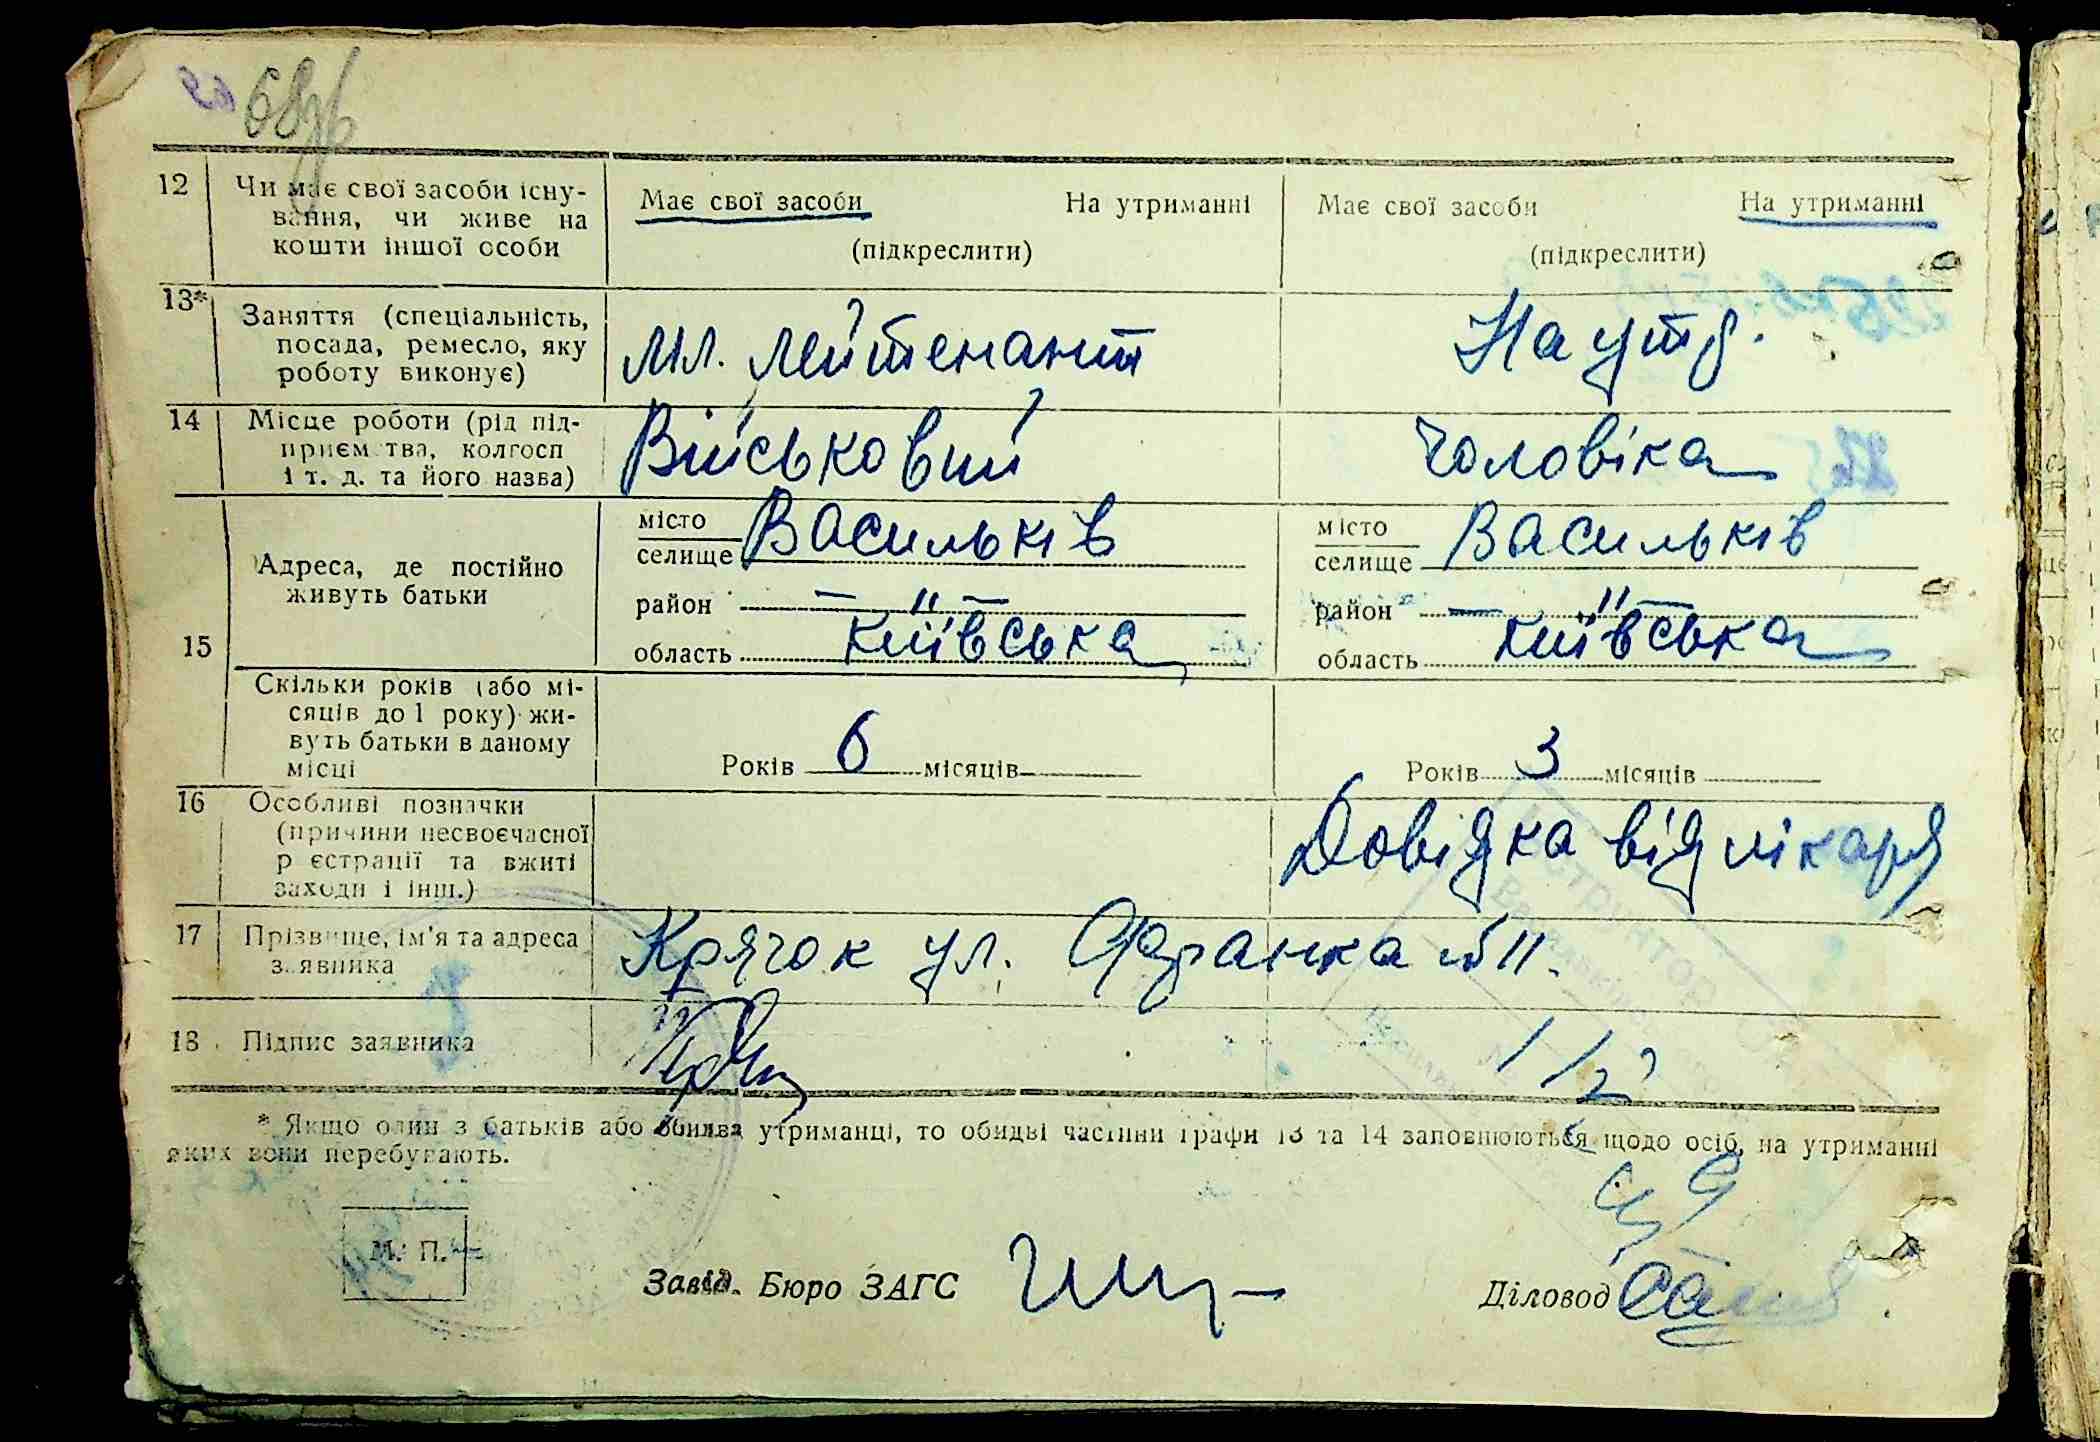 68зв
12 Чи має свої засоби існу-
вання, чи живе на
кошти іншої особи
Має свої засоби На утриманні
(підкреслити)
Має свої засоби На утриманні
(підкреслити)
13* Заняття (спеціальність,
посада, ремесло, яку
роботу виконує)
Мл. лейтенант
На утр.
14 Місце роботи (рід під-
приємства, колгосп
і т. д. та його назва)
Військовий
чоловіка
15 Адреса, де постійно
живуть батьки
місто
селище Васильків
район — " —
область Київська
місто
селище Васильків
район — " —
область Київська
Скільки років (або мі-
сяців до 1 року) жи-
вуть батьки в даному
місці
Років 6 місяців
Років 3 місяців
16 Особливі позначки
(причини несвоєчасної
реєстрації та вжиті
заходи і інш.)
Довідка від лікаря
17 Прізвище, ім'я та адреса
заявника
Крячок ул. Франка №11.
18 Підпис заявника
* Якщо один з батьків або обидва утриманці, то обидві частини графи 13 та 14 заповнюються щодо осіб, на утриманні
яких вони перебувають.
М. П.
Завід. Бюро ЗАГС
Діловод